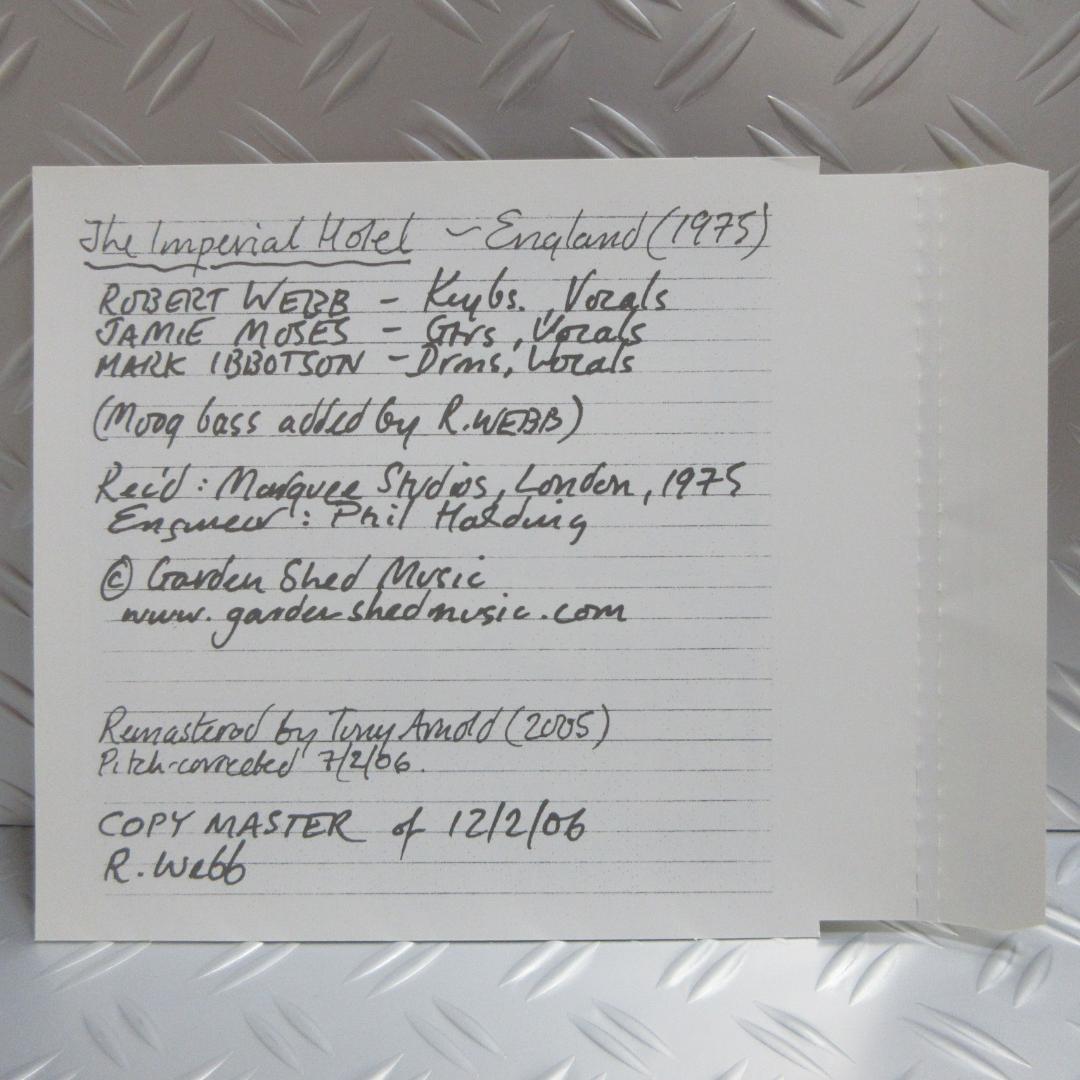 The Imperial Hotel ~ England (1975)
ROBERT WEBB - Keybs., Vocals
JAMIE MOSES - Gtrs, Vocals
MARK IBBOTSON - Drms, Vocals
(Moog bass added by R.WEBB)
Rec'd: Marquee Studios, London, 1975
Engineer: Phil Harding
© Garden Shed Music
www.gardenshedmusic.com
Remastered by Tony Arnold (2005)
Pitch-corrected 7/2/06.
COPY MASTER of 12/2/06
R. Webb